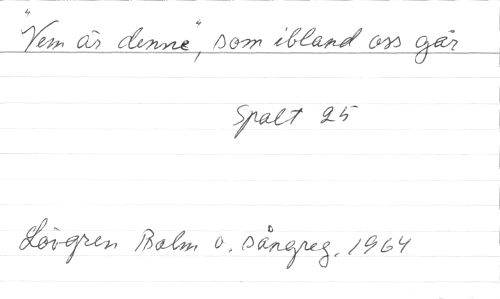 "Vem är denne", som ibland oss går
Spalt 25
Lövgren Psalm o. sångreg. 1964